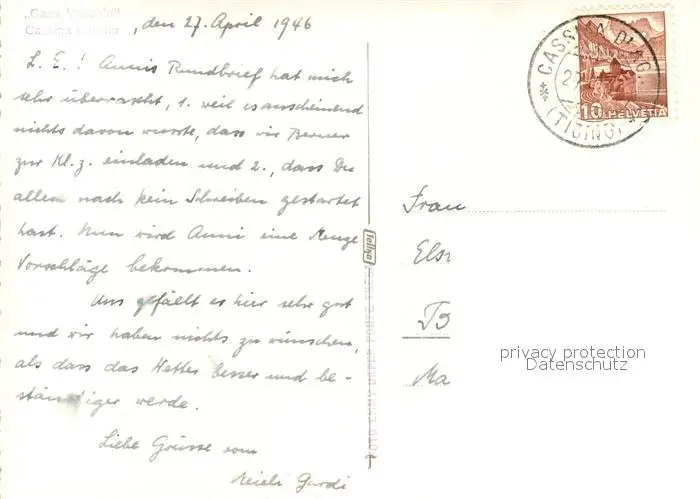 , den 27. April 1946
L. E.! Annis Rundbrief hat mich
sehr überrascht, 1. weil es anscheinend
nichts davon wusste, dass wir Berner
zur Kl. z. einladen und 2., dass Du
allem nach kein Schreiben gestartet
hast. Nun wird Anni eine Menge
Vorschläge bekommen.
Uns gefällt es hier sehr gut
und wir haben nichts zu wünschen,
als dass das Wetter besser und be-
ständiger werde.
Liebe Grüsse vom
CASSINA D'AG.
(TICINO)
10 HELVETIA
Tellko
Frau
Els
B
Ma
privacy protection
Datenschutz